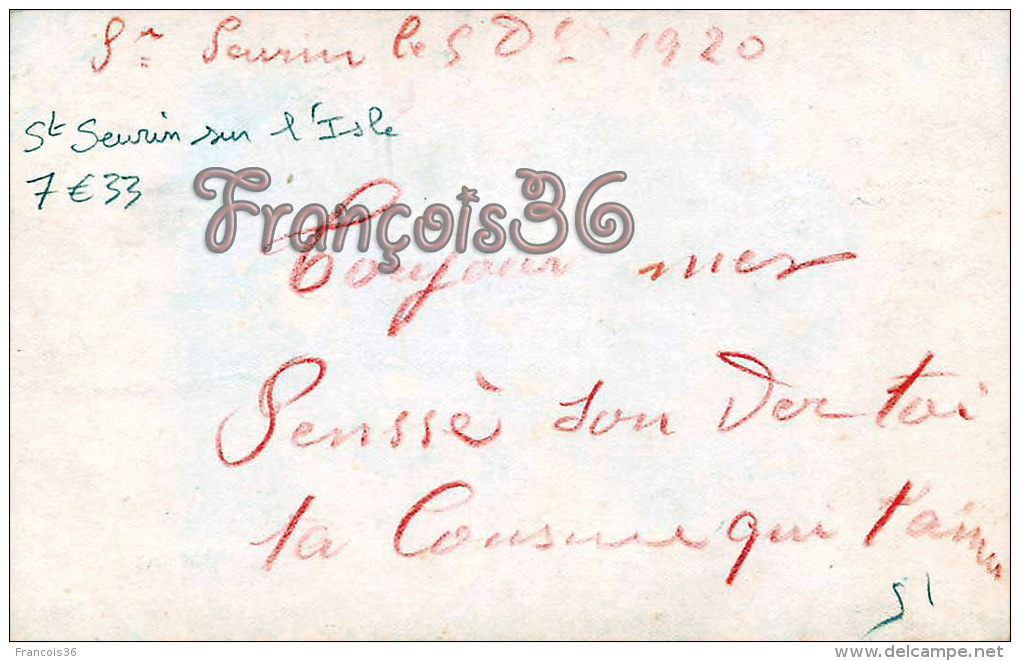 St Seurin le 5 D 1920
St Seurin sur l'Isle
7 € 33
François36
Bonjour mes
Penssè son Der toi
ta Cousine qui t'aime
51
Francois36
www.delcampe.net